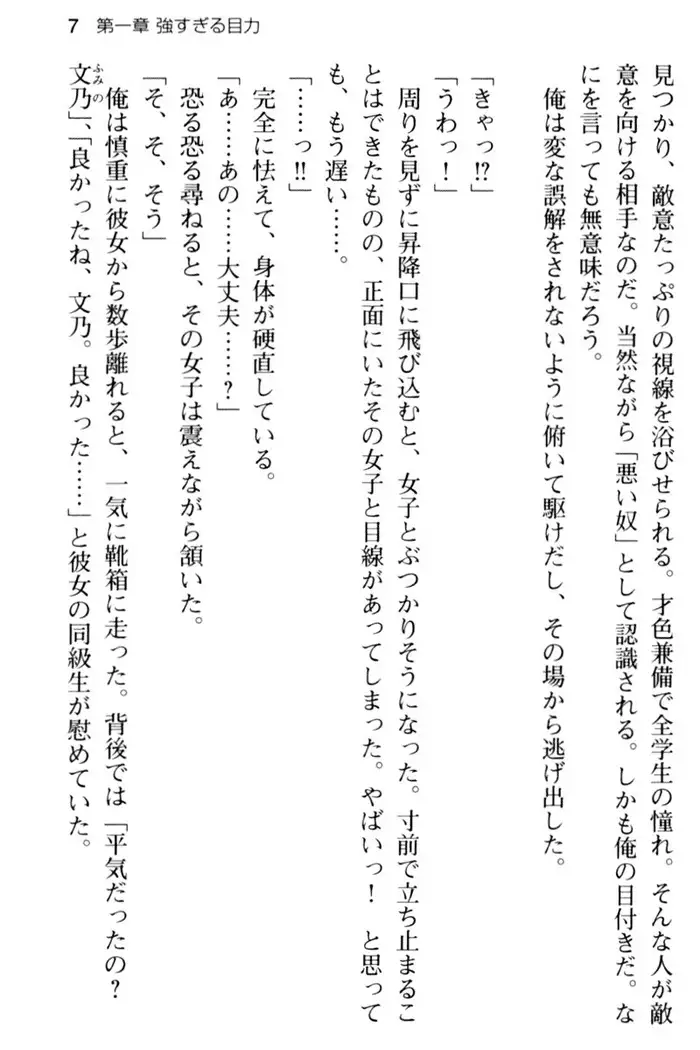 7 第一章 強すぎる目力
見つかり、敵意たっぷりの視線を浴びせられる。才色兼備で全学生の憧れ。そんな人が敵
意を向ける相手なのだ。当然ながら「悪い奴」として認識される。しかも俺の目付きだ。な
にを言っても無意味だろう。
俺は変な誤解をされないように俯いて駆けだし、その場から逃げ出した。
「きゃっ!?」
「うわっ！」
周りを見ずに昇降口に飛び込むと、女子とぶつかりそうになった。寸前で立ち止まるこ
とはできたものの、正面にいたその女子と目線があってしまった。やばいっ！　と思って
も、もう遅い……。
「……っ!!」
完全に怯えて、身体が硬直している。
「あ……あの……大丈夫……？」
恐る恐る尋ねると、その女子は震えながら頷いた。
「そ、そ、そう」
俺は慎重に彼女から数歩離れると、一気に靴箱に走った。背後では「平気だったの？
文乃」、「良かったね、文乃。良かった……」と彼女の同級生が慰めていた。
ふみの